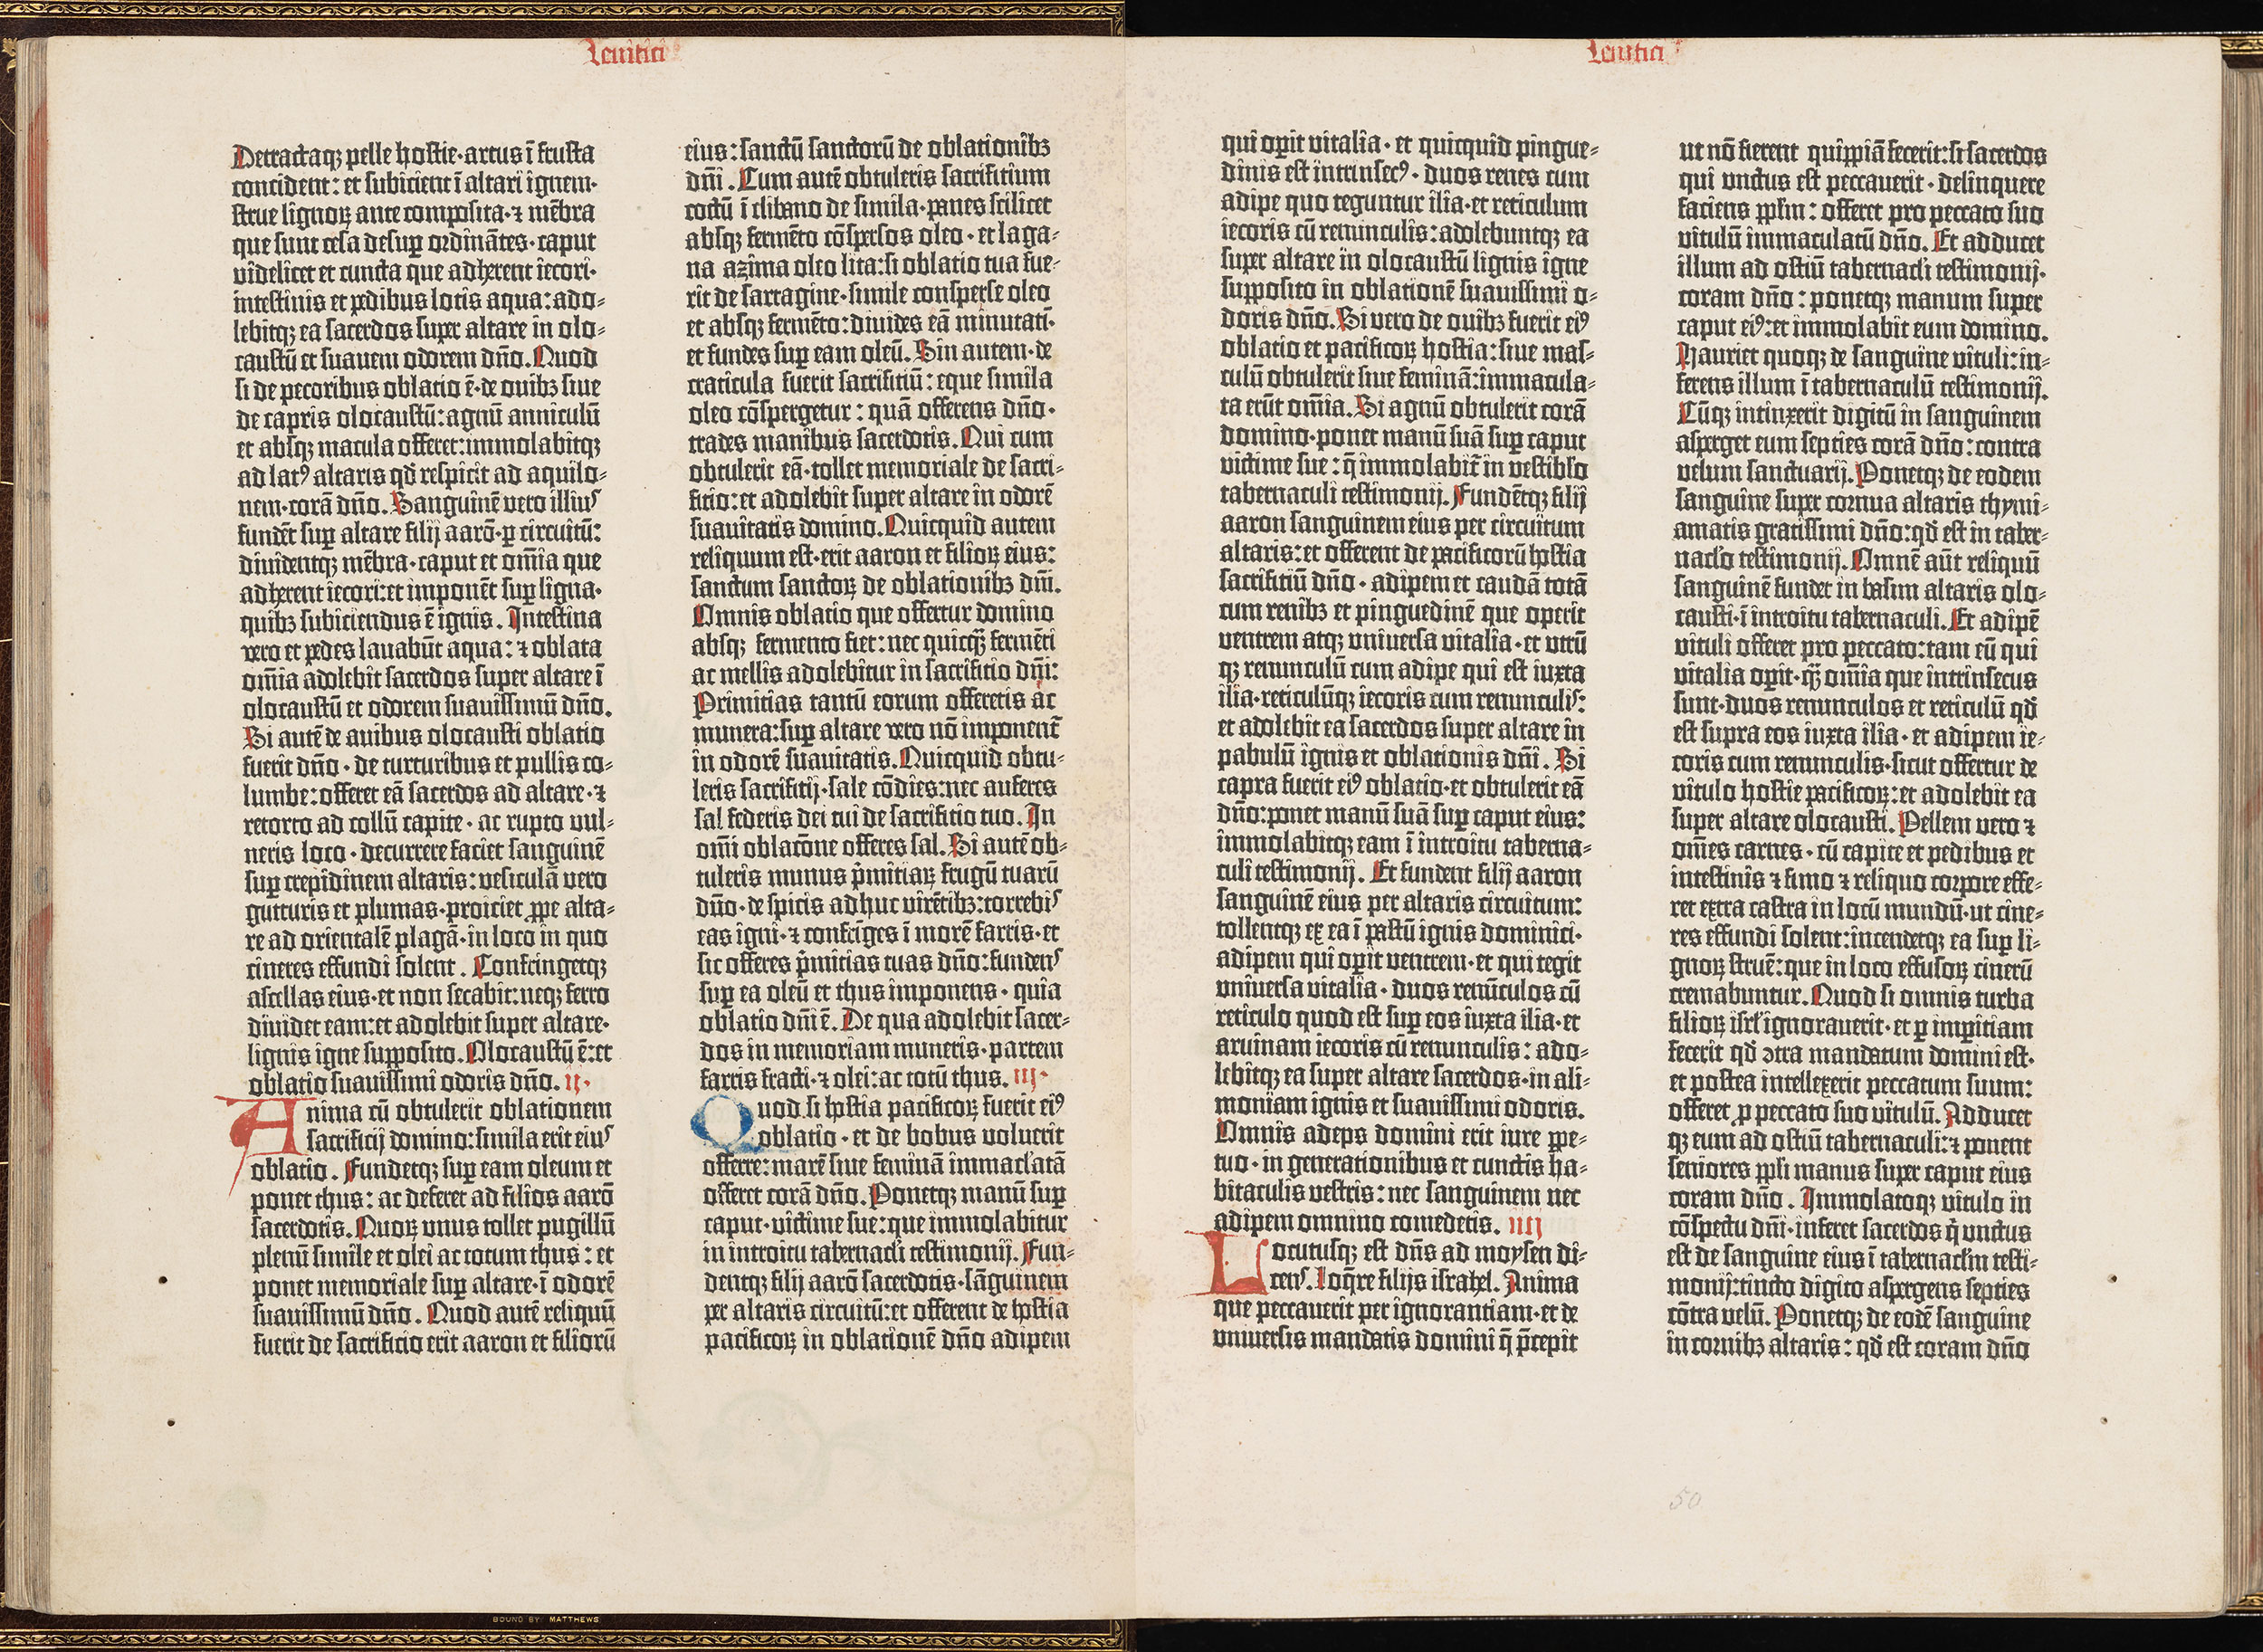 Leuitici
Detractaqꝫ pelle hostie·artus ī frusta
concident: et subicient ī altari ignem·
strue lignoꝝ ante composita·⁊ mēbra
que sunt cesa desuꝑ ordinātes·caput
videlicet et cuncta que adherent iecori·
intestinis et pedibus lotis aqua: ado-
lebitqꝫ ea sacerdos super altare in olo-
caustū et suauem odorem dño. Quod
si de pecoribus oblatio ē·de ouibꝫ siue
de capris olocaustū: agnū anniculū
et absqꝫ macula offeret: immolabitqꝫ
ad latꝰ altaris qd̄ respicit ad aquilo-
nem·corā dño. Sanguinē vero illius
fundēt suꝑ altare filij aarō·ꝑ circuitū:
diuidentqꝫ mēbra·caput et om̄ia que
adherent iecori: et imponēt suꝑ ligna·
quibꝫ subiciendus ē ignis. Intestina
vero et pedes lauabūt aqua: ⁊ oblata
om̄ia adolebit sacerdos super altare ī
olocaustū et odorem suauissimū dño.
Si autē de auibus olocausti oblatio
fuerit dño·de turturibus et pullis co-
lumbe: offeret eā sacerdos ad altare·⁊
retorto ad collū capite·ac rupto vul-
neris loco·decurrere faciet sanguinē
suꝑ crepidinem altaris: vesiculā vero
gutturis et plumas·proiciet ꝓpe alta-
re ad orientalē plagā·in loco in quo
cineres effundi solent. Confringetqꝫ
ascellas eius·et non secabit: neqꝫ ferro
diuidet eam: et adolebit super altare·
lignis igne supposito. Olocaustū ē: et
oblatio suauissimi odoris dño. ij·
Anima cū obtulerit oblationem
sacrificij domino: simila erit eius
oblatio. Fundetqꝫ suꝑ eam oleum et
ponet thus: ac deferet ad filios aarō
sacerdotis. Quoꝝ vnus tollet pugillū
plenū simile et olei ac totum thus: et
ponet memoriale suꝑ altare·ī odorē
suauissimū dño. Quod autē reliquū
fuerit de sacrificio erit aaron et filiorū
eius: sanctū sanctorū de oblationibꝫ
dñi. Cum autē obtuleris sacrificium
coctū ī clibano de simila·panes scilicet
absqꝫ fermēto cōspersos oleo·et laga-
na azima oleo lita: si oblatio tua fue-
rit de sartagine·simile consperse oleo
et absqꝫ fermēto: diuides eā minutati·
et fundes suꝑ eam oleū. Sin autem·de
craticula fuerit sacrificiū: eque simila
oleo cōspergetur: quā offerens dño·
trades manibus sacerdotis. Qui cum
obtulerit eā·tollet memoriale de sacri-
ficio: et adolebit super altare in odorē
suauitatis domino. Quicquid autem
reliquum est·erit aaron et filioꝝ eius:
sanctum sanctoꝝ de oblationibꝫ dñi.
Omnis oblatio que offertur domino
absqꝫ fermento fiet: nec quicqꝫ̄ fermēti
ac mellis adolebitur in sacrificio dñi:
Primitias tantū eorum offeretis ac
munera: suꝑ altare vero nō imponent̄
in odorē suauitatis. Quicquid obtu-
leris sacrificij·sale cōdies: nec auferes
sal federis dei tui de sacrificio tuo. In
om̄i oblacōne offeres sal. Si autē ob-
tuleris munus p̄mitiaꝝ frugū tuarū
dño·de spicis adhuc virētibꝫ: torrebis
eas igni·⁊ confrīges ī morē farris·et
sic offeres p̄mitias tuas dño: fundens
suꝑ ea oleū et thus imponens·quia
oblatio dñi ē. De qua adolebit sacer-
dos in memoriam muneris·partem
farris fracti·⁊ olei: ac totū thus. iij·
Quod si hostia pacificoꝝ fuerit eiꝰ
oblatio·et de bobus voluerit
offerre: marē siue feminā immaclatā
offeret corā dño. Ponetqꝫ manū suꝑ
caput·victime sue: que immolabitur
in introitu tabernacli testimonij. Fun-
dentqꝫ filij aarō sacerdotis·sāguinem
per altaris circuitū: et offerent de hostia
pacificoꝝ in oblationē dño adipem
Leuitici
qui oꝑit vitalia·et quicquid pingue-
dinis est intrinsecꝰ·duos renes cum
adipe quo teguntur ilia·et reticulum
iecoris cū renunculis: adolebuntqꝫ ea
super altare in olocaustū lignis igne
supposito in oblationē suauissimi o-
doris dño. Si vero de ouibꝫ fuerit eiꝰ
oblatio et pacificoꝝ hostia: siue mas-
culū obtulerit siue feminā: immacula-
ta erūt om̄ia. Si agnū obtulerit corā
domino·ponet manū suā suꝑ caput
victime sue: q̄ immolabit̄ in vestiblo
tabernaculi testimonij. Fundētqꝫ filij
aaron sanguinem eius per circuitum
altaris: et offerent de pacificorū hostia
sacrificiū dño·adipem et caudā totā
cum renibꝫ et pinguedinē que operit
ventrem atqꝫ vniuersa vitalia·et vtrū
qꝫ renunculū cum adipe qui est iuxta
ilia·reticulūqꝫ iecoris cum renunculis:
et adolebit ea sacerdos super altare in
pabulū ignis et oblationis dñi. Si
capra fuerit eiꝰ oblatio·et obtulerit eā
dño: ponet manū suā suꝑ caput eius:
immolabitqꝫ eam ī introitu taberna-
culi testimonij. Et fundent filij aaron
sanguinē eius per altaris circuitum:
tollentqꝫ ex ea ī pastū ignis dominici·
adipem qui oꝑit ventrem·et qui tegit
vniuersa vitalia·duos renūculos cū
reticulo quod est suꝑ eos iuxta ilia·et
aruinam iecoris cū renunculis: ado-
lebitqꝫ ea super altare sacerdos·in ali-
moniam ignis et suauissimi odoris.
Omnis adeps domini erit iure ꝑpe-
tuo·in generationibus et cunctis ha-
bitaculis vestris: nec sanguinem nec
adipem omnino comedetis. iiij
Locutusqꝫ est dñs ad moysen di-
cens. Loq̄re filijs israhel. Anima
que peccauerit per ignorantiam·et de
vniuersis mandatis domini q̄ p̄cepit
ut nō fierent quippiā fecerit: si sacerdos
qui vnctus est peccauerit·delinquere
faciens pplm̄: offeret pro peccato suo
vitulū immaculatū dño. Et adducet
illum ad ostiū tabernacli testimonij·
coram dño: ponetqꝫ manum super
caput eiꝰ: et immolabit eum domino.
Hauriet quoqꝫ de sanguine vituli: in-
ferens illum ī tabernaculū testimonij.
Cūqꝫ intinxerit digitū in sanguinem
asperget eum septies corā dño: contra
velum sanctuarij. Ponetqꝫ de eodem
sanguine super cornua altaris thymi-
amatis gratissimi dño: qd̄ est in taber-
naclo testimonij. Omnē aūt reliquū
sanguinē fundet in basim altaris olo-
causti·ī introitu tabernaculi. Et adipē
vituli offeret pro peccato: tam eū qui
vitalia oꝑit·qꝫ̄ om̄ia que intrinsecus
sunt·duos renunculos et reticulū qd̄
est supra eos iuxta ilia·et adipem ie-
coris cum renunculis·sicut offertur de
vitulo hostie pacificoꝝ: et adolebit ea
super altare olocausti. Pellem vero ⁊
om̄es carnes·cū capite et pedibus et
intestinis ⁊ fimo ⁊ reliquo corpore effe-
ret extra castra in locū mundū·ut cine-
res effundi solent: incendetqꝫ ea suꝑ li-
gnoꝝ struē: que in loco effusoꝝ cinerū
cremabuntur. Quod si omnis turba
filioꝝ isrl̄ ignorauerit·et ꝑ imꝑitiam
fecerit qd̄ ꝯtra mandatum domini est·
et postea intellexerit peccatum suum:
offeret ꝓ peccato suo vitulū. Adducet
qꝫ eum ad ostiū tabernaculi: ⁊ ponent
seniores ppli manus super caput eius
coram dño. Immolatoqꝫ vitulo in
cōspectu dñi·inferet sacerdos q̄ vnctus
est de sanguine eius ī tabernaclm testi-
monij: tincto digito aspergens septies
cōtra velū. Ponetqꝫ de eodē sanguine
in cornibꝫ altaris: qd̄ est coram dño
50
BOUND BY MATTHEWS